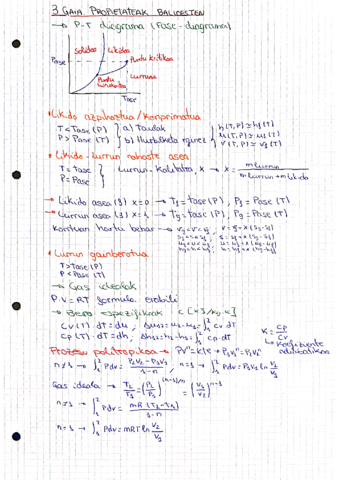 3. GAIA PROPIETATEAK BALIOESTEN
→ P-T diagrama (Fase-diagrama)
Solidoa
Likido
Pase
Puntu kritikoa
Lurruna
Puntu hirukoitza
Tase
• Likido azpihoztua/konprimatua
T < Tase (P) } a) Taulak { h(T,P) ≃ hf(T)
P > Pase (T) } b) Hurbilketa eginez { u(T,P) ≃ uf(T)
v(T,P) ≃ vf(T)
• Likido-Lurrun nahaste asea
T = Tase } Lurrun-kalitatea, x → x = m lurrun / m lurrun + m likido
P = Pase
→ Likido asea (f) x=0 → Tf = Tase (P), Pf = Pase (T)
→ Lurrun asea (g) x=1 → Tg = Tase (P), Pg = Pase (T)
Kontuan hartu behar → vf < v < vg, v = vf + x (vg - vf)
sf < s < sg, s = sf + x (sg - sf)
uf < u < ug, u = uf + x (ug - uf)
hf < h < hg, h = hf + x (hg - hf)
• Lurrun gainberotua
T > Tase (P)
P < Pase (T)
→ Gas idealak
P·v = RT formula erabili
→ Bero espezifikoak c [kJ/kg·K]
Cv(T)·dT = du, Δu12 = u2 - u1 = ∫₁² Cv dT
Cp(T)·dT = dh, Δh12 = h2 - h1 = ∫₁² Cp dT
K = Cp/Cv
↳ Koefiziente adiabatikoa
Prozesu politropikoa → PVⁿ = kte → P1V1ⁿ = P2V2ⁿ
n≠1 → ∫₁² Pdv = P2V2 - P1V1 / 1-n, n=1 → ∫₁² Pdv = P1V1 ln V2/V1
Gas ideala → T2/T1 = (P2/P1)^(n-1)/n = (V1/V2)^n-1
n≠1 → ∫₁² Pdv = mR (T2-T1) / 1-n
n=1 → ∫₁² Pdv = mRT ln V2/V1